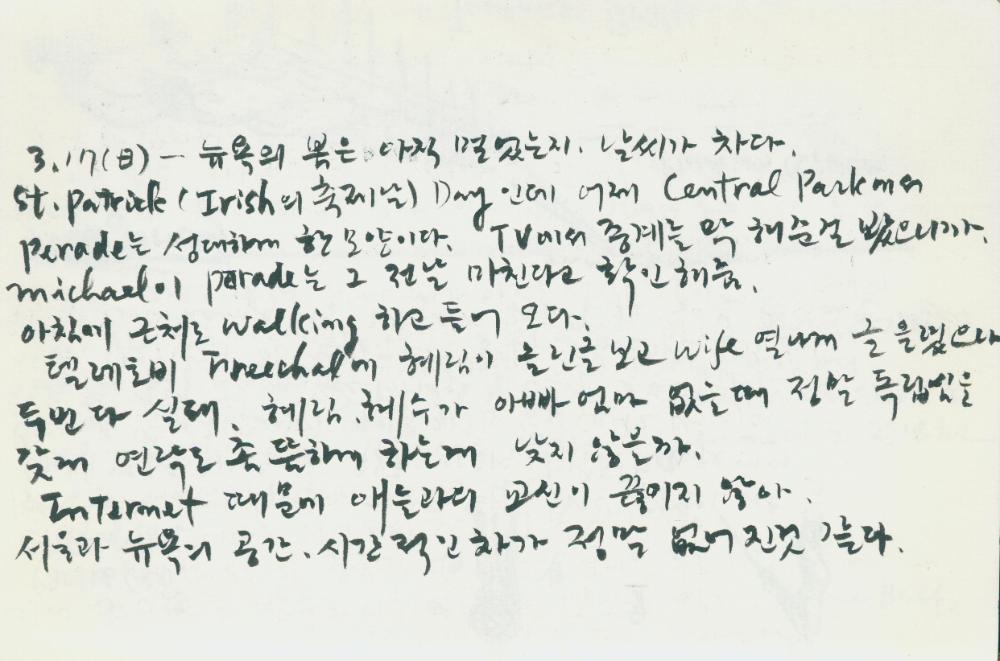 3.17(日) - 뉴욕의 봄은 아직 멀었는지. 날씨가 차다.
St. Patrick (Irish의 축제날) Day 인데 어제 Central Park에서
Parade는 성대하게 한 모양이다. TV에서 중계를 막 해준걸 봤으니까.
michael이 parade는 그 전날 마친다고 확인해줌.
아침에 근처로 walking 하고 들어 오다.
텔레토비 Freechal에 혜림이 올린글 보고 wife 열나게 글을 띄웠으나
두번 다 실패. 혜림, 혜수가 아빠 엄마 없을때 정말 독립심을
갖게 연락도 좀 뜸하게 하는게 낫지 않을까.
Internet 때문에 애들과의 교신이 끊기지 않아.
서울과 뉴욕의 공간. 시간적인 차가 정말 없어진것 같다.